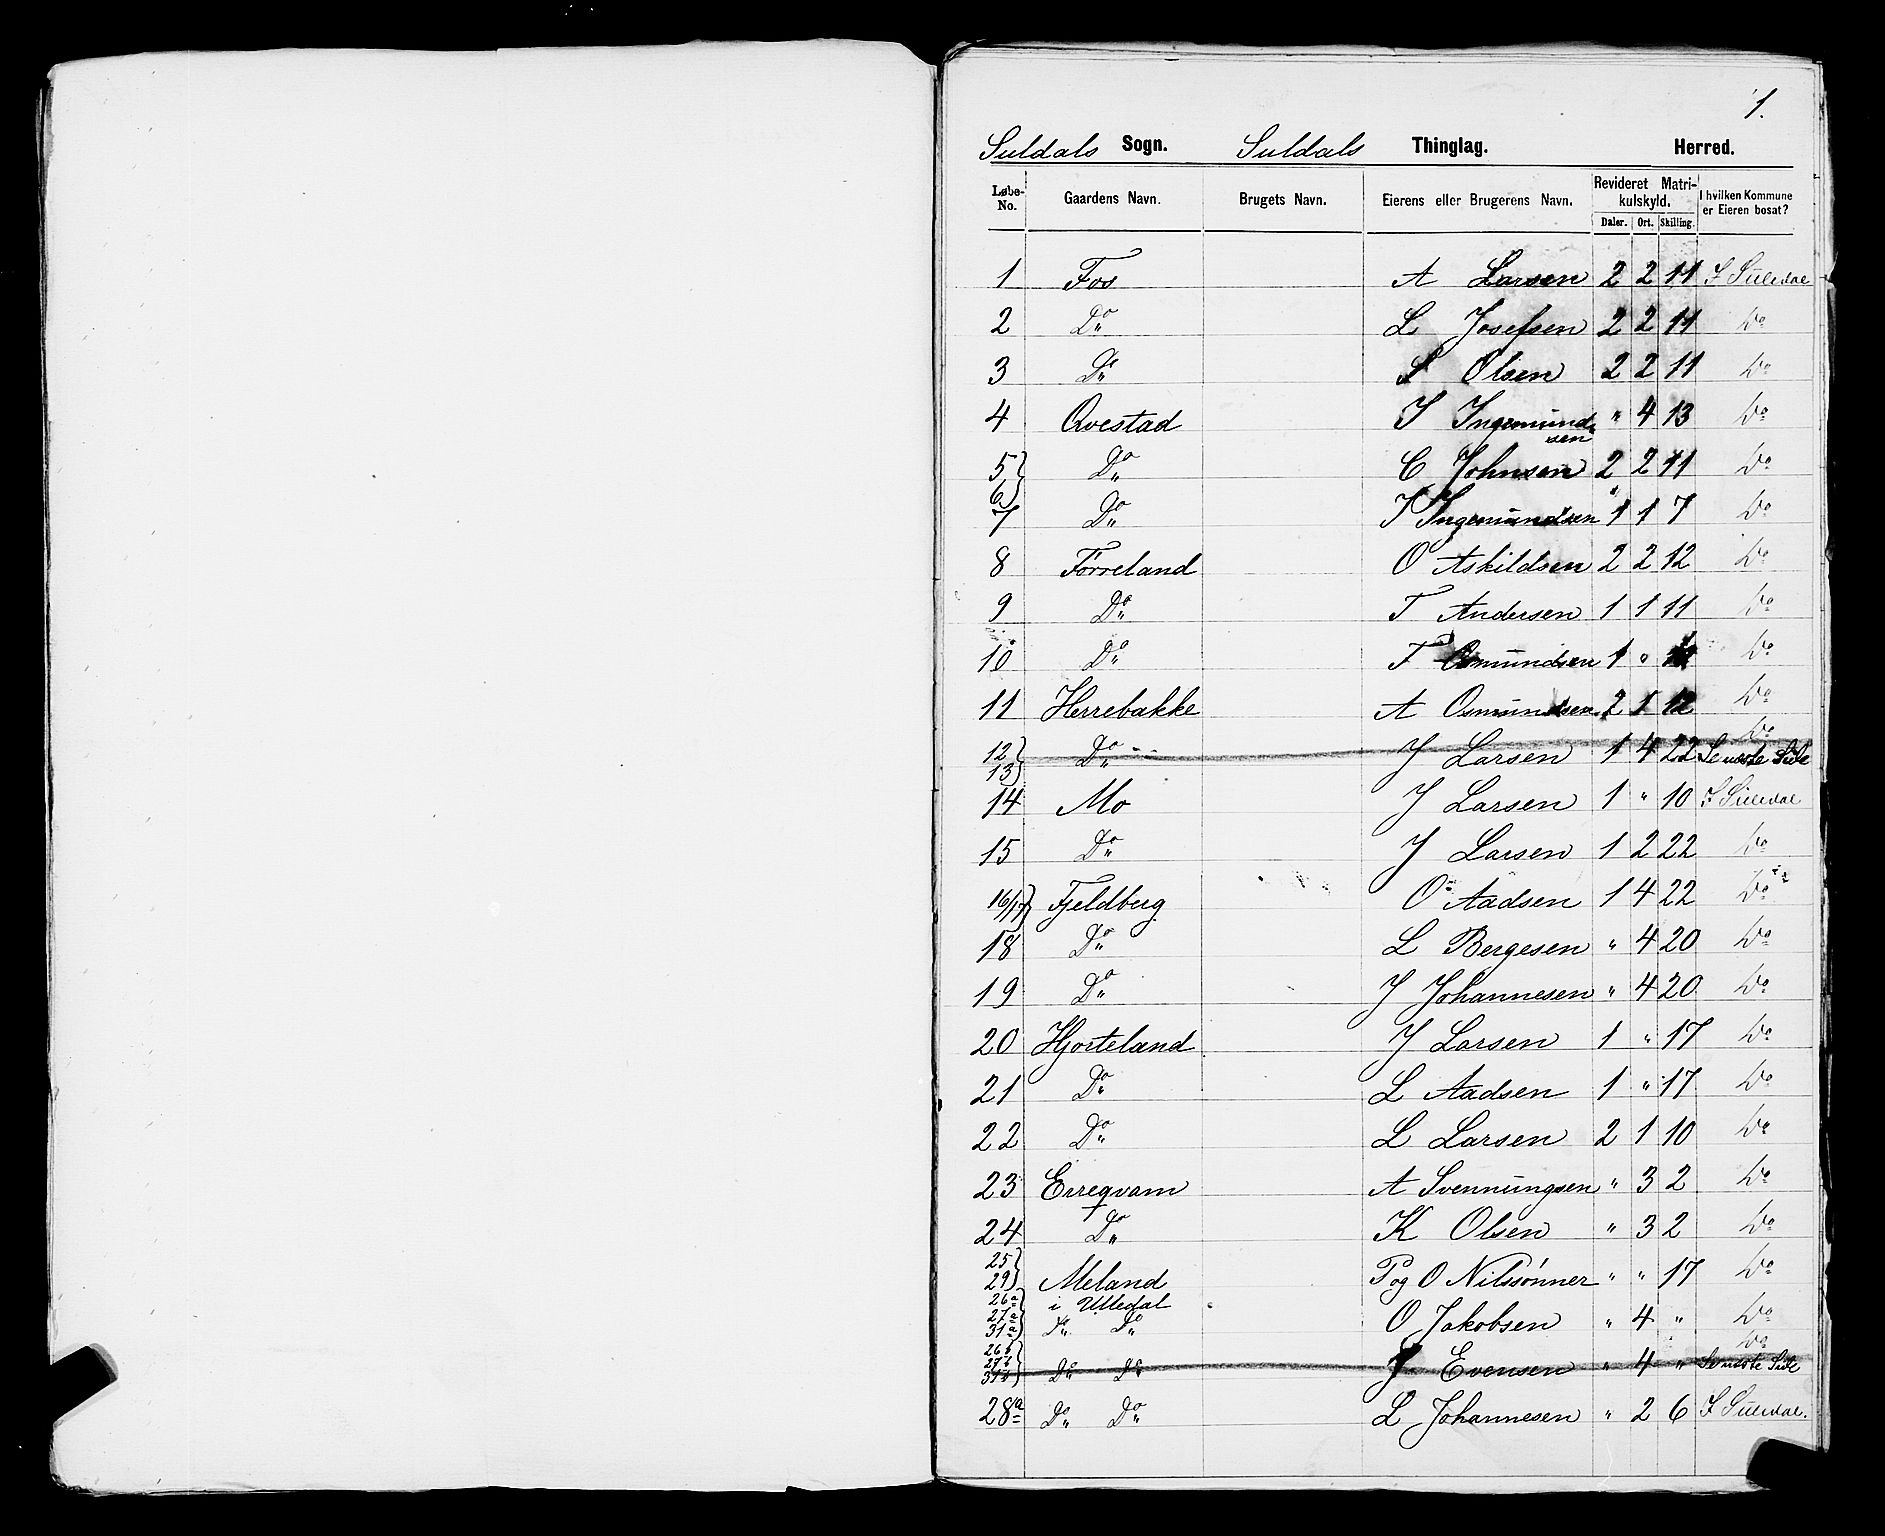 1.
Suldals Sogn. Suldals Thinglag. Herred.
Løbe-No. Gaardens Navn. Brugets Navn. Eierens eller Brugerens Navn. Revideret Matrikulskyld. I hvilken Kommune er Eieren bosat?
Daler. Ort. Skilling.
1 Fos A Larsen 2 2 11 I Suledal
2 Do L Josefsen 2 2 11 Do
3 Do L Olsen 2 2 11 Do
4 Qvestad I Ingemundsen " 4 13 Do
5 6 Do C Johnsen 2 2 11 Do
7 Do I Ingemundsen 1 1 7 Do
8 Førreland O Askildsen 2 2 12 Do
9 Do T Andersen 1 1 11 Do
10 Do T Osmundsen 1 " Do
11 Herrebakke A Osmundsen 2 1 12 Do
12 13 Do J Larsen 1 4 22 Do Se næste Side
14 Mo J Larsen 1 " 10 I Suledal
15 Do J Larsen 1 2 22 Do
16/17 Fjeldberg O Aadsen 1 4 22 Do
18 Do L Bergesen " 4 20 Do
19 Do J Johannesen " 4 20 Do
20 Hjorteland J Larsen 1 " 17 Do
21 Do L Aadsen 1 " 17 Do
22 Do L Larsen 2 1 10 Do
23 Erreqvam A Svennungsen " 3 2 Do
24 Do K Olsen " 3 2 Do
25 29 Meland i Ulledal P og O Nilssønner " " 17 Do
26a 27a 31a Do Do O Jakobsen " 4 " Do
26b 27b 31b Do Do J Evensen " 4 " Do Se næste Side
28a Do Do L Johannesen " 2 6 I Suledal.